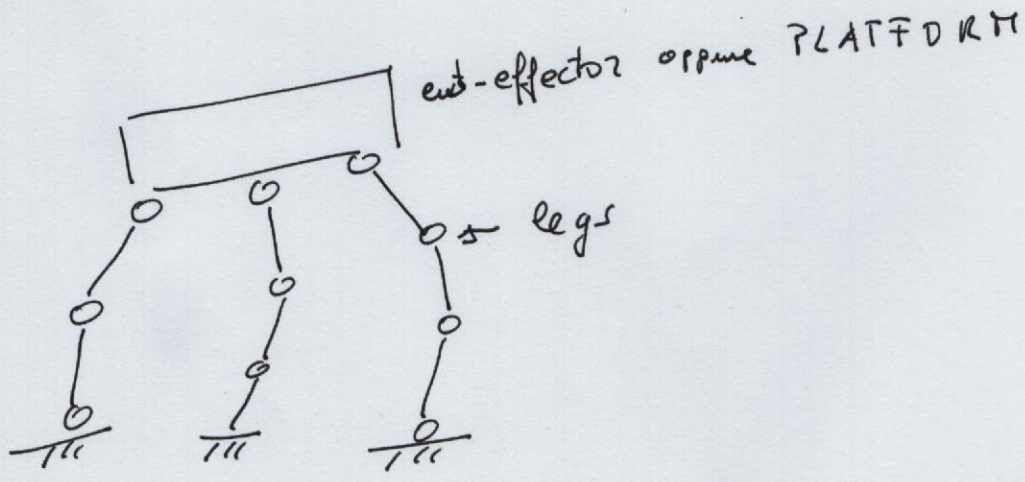 end-effector oppure PLATFORM
legs